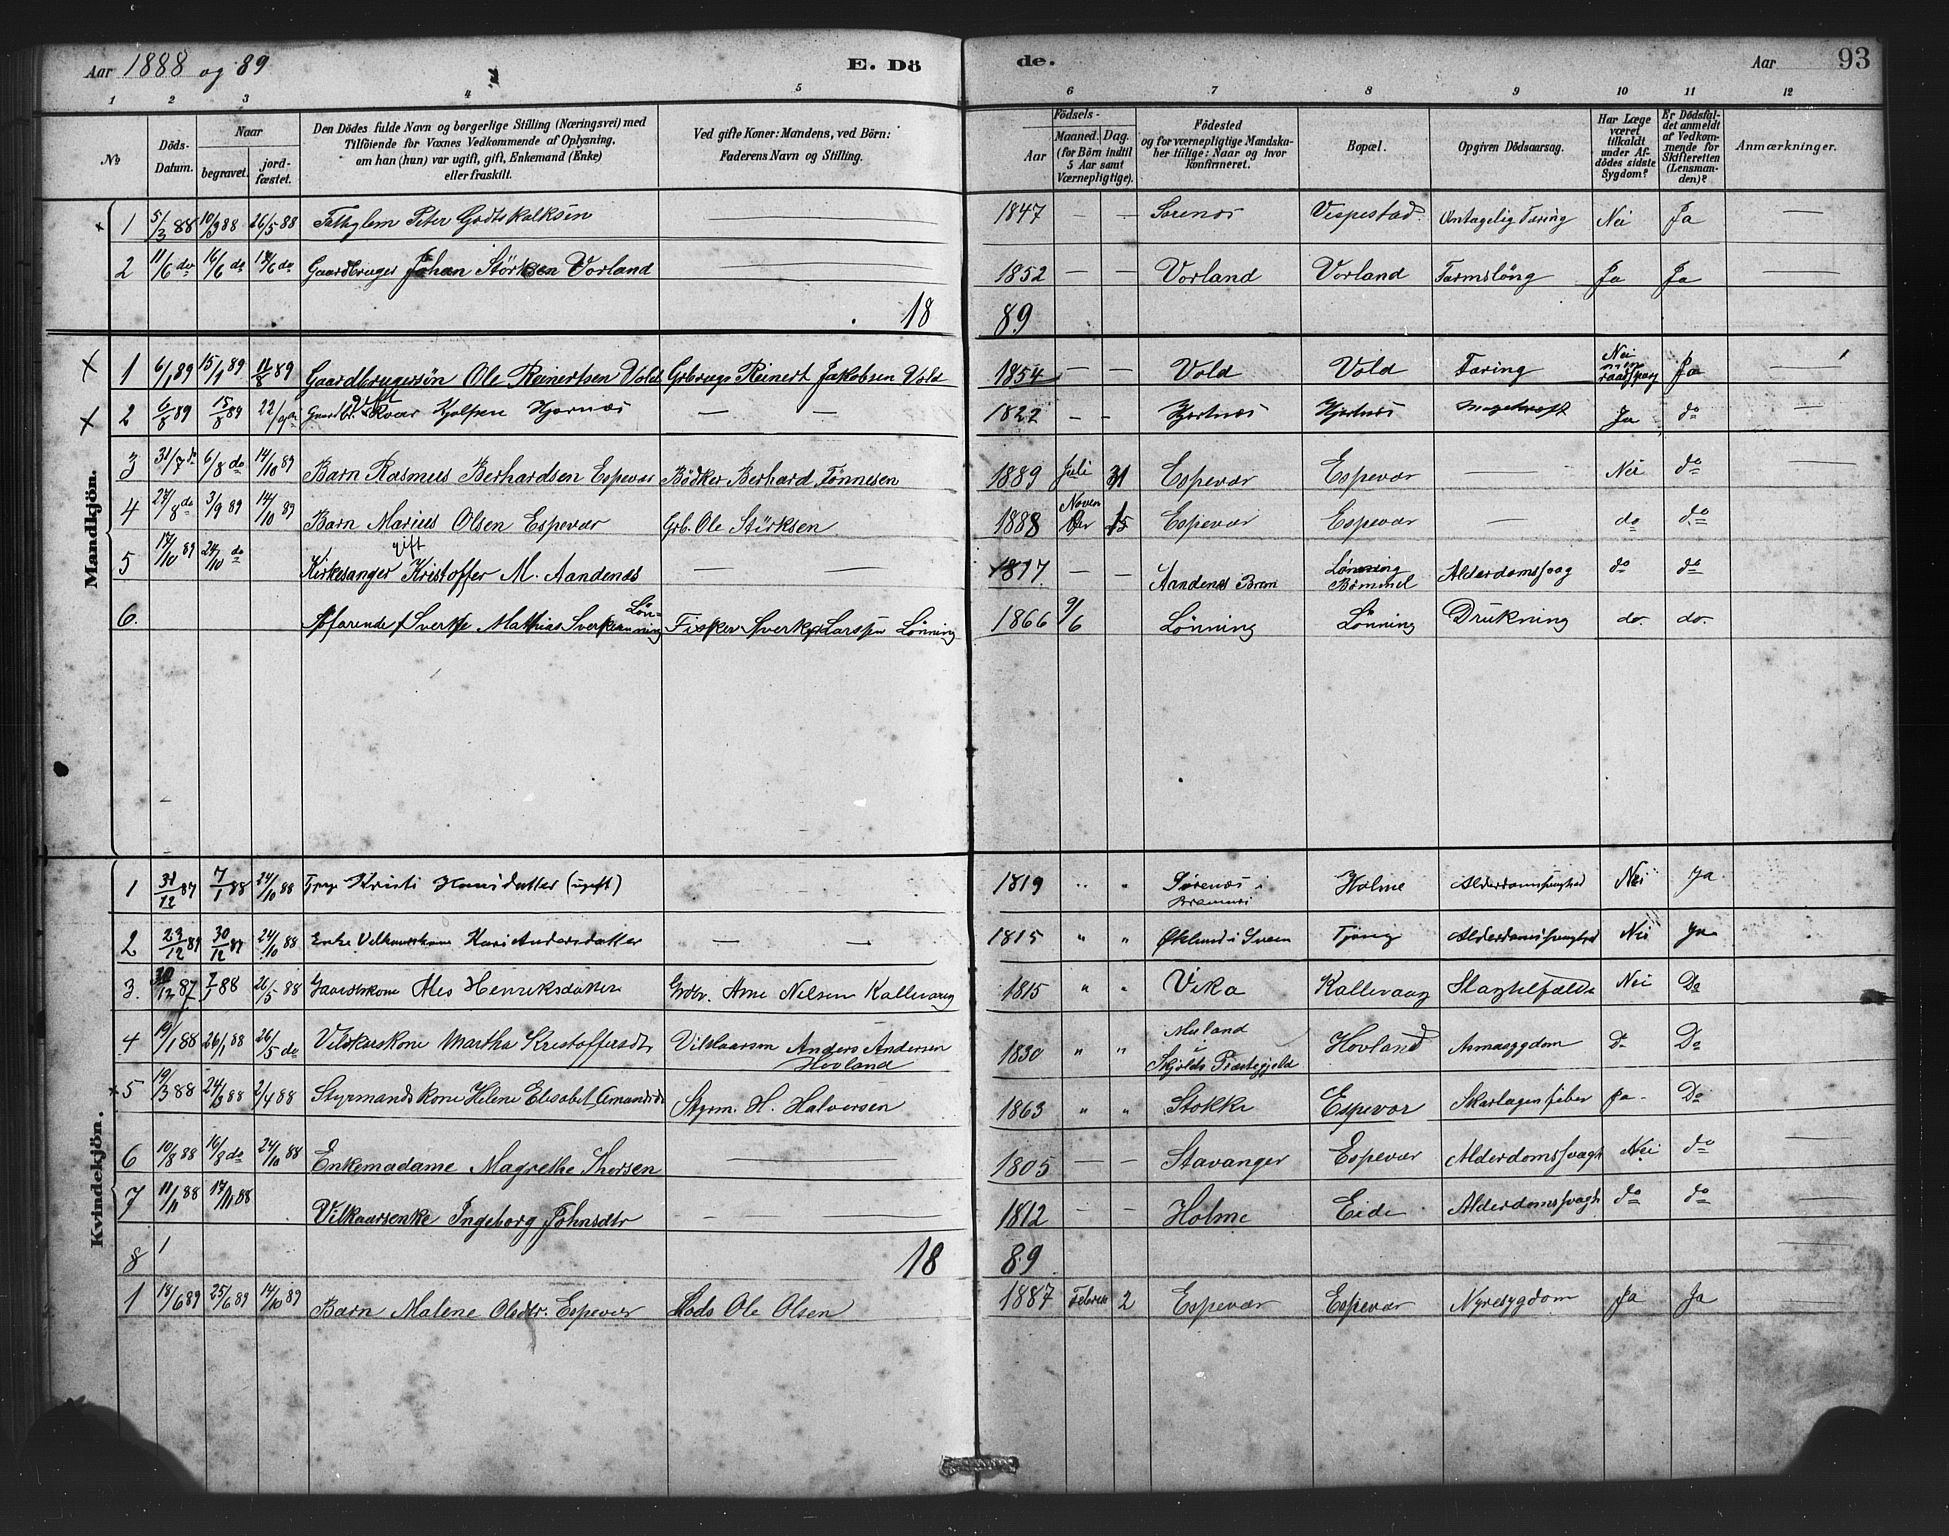 Aar 1888 og 89 E. Dö de. Aar 93
1 2 3 4 5 6 7 8 9 10 11 12
No
Döds-Datum.
Naar
begravet.
jord-fæstet.
Den Dödes fulde Navn og borgerlige Stilling (Næringsvei) med
Tilföiende for Voxnes Vedkommende af Oplysning,
om han (hun) var ugift, gift, Enkemand (Enke)
eller fraskilt.
Ved gifte Koner: Mandens, ved Börn:
Faderens Navn og Stilling.
Födsels-
Aar
Maaned. Dag.
(for Börn indtil
5 Aar samt
Værnepligtige).
Födested
og for værnepligtige Mandska-
ber tillige: Naar og hvor
konfirmeret.
Bopæl.
Opgiven Dödsaarsag.
Har Læge
været
tilkaldt
under Af-
dödes sidste
Sygdom?
Er Dödsfal-
det anmeldt
af Vedkom-
mende for
Skifteretten
(Lensman-
den)?
Anmærkninger.
Mandkjön.
1 5/3 88 10/3 88 26/5 88 Peter Godtskalksen — 1847 — — Sørenes Vespestad Antagelig Tæring Nei Ja —
2 11/6 do 16/6 do do Gaardbruger Johan Störksen Vorland — 1852 — — Vorland Vorland Tarmslöng Ja Ja —
18 89
1 6/1 89 15/1 89 11/8 89 Gaardbrugersön Ole Reinertsen Vold Grbrugr Reinert Jakobsen Vold 1854 — — Vold Vold Tæring Nei Ja —
2 6/8 89 15/8 89 gift Hjornæs — — 1822 — — Hjortnæs Hjortnæs Ja do —
3 31/7 do 6/8 do 14/10 89 Barn Rasmus Berhardsen Espevær Bödker Berhard Tönnesen 1889 Juli 31 Espevær Espevær — Nei do —
4 27/8 do 3/9 89 14/10 89 Barn Marius Olsen Espevær Grb. Ole Störksen 1888 Novenber 15 Espevær Espevær — do do
5 17/10 89 24/10 do Kirkesanger gift Kristoffer M. Aandenæs — — 1817 — — Aandenes Lönning Bömmel Alderdomssvag do do
6. Söfarende Sverke Mathias Sverkesen Lönning Fisker Sverke Larsen Lönning 1866 9/6 Lönning Lönning Drukning do. do.
Kvindekjön.
1 31/12 87 7/1 88 24/10 88 Kristi Hansdatter (ugift) 1819 " " Sørenæs i Bremnæs Holme Alderdomssvaghed Nei Ja
2 23/12 89 30/12 87 24/10 88 Enke Vilkaarskone Kari Andersdatter — — 1815 " " Øklund i Sveen Tjong Alderdomssvaghed Nei Ja
3. 30/12 87 7/1 88 26/5 88 Gaardskone Henriksdatter Grdbr. Arne Nilsen Kallevaag 1815 " " Vika Kallevaag Slagtilfælde Nei Do
4 19/1 88 26/1 88 26/5 do Vilkarskone Martha Kristoffersdt. Vilkaarsm Anders Andersen Hovland 1830 " " Skjolds Præstegjeld Hovland Asmasygdom Do Do
5 19/3 88 24/3 88 2/4 88 Styrmandskone Helene Elisabet Styrm. H. Halversen 1863 " " Stokke Espevær Skarlagensfeber Ja. Do
6 10/8 88 16/8 do 24/10 88 Enkemadame Magrethe Thorsen — 1805 — — Stavanger Espevær Alderdomssvagh Nei do
7 11/11 88 17/11 88 Vilkaarsenke Ingeborg Johnsdtr — 1812 — — Holme Eide Alderdomssvagh do do
8 18 89
1 18/6 89 25/6 89 14/10 89 Barn Malene Olsdtr. Espevær Lods Ole Olsen 1887 Februar 2 Espevær Espevær Nyresygdom Ja Ja